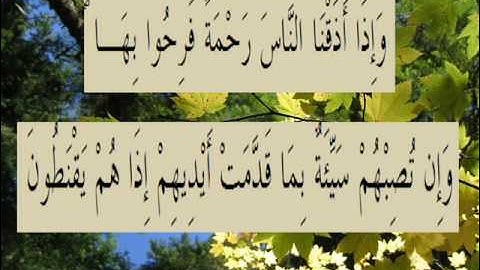 وَإِذَا أَذَقْنَا النَّاسَ رَحْمَةً فَرِحُوا بِهَـــا ۖ
وَإِن تُصِبْهُمْ سَيِّئَةٌ بِمَا قَدَّمَتْ أَيْدِيهِمْ إِذَا هُمْ يَقْنَطُونَ